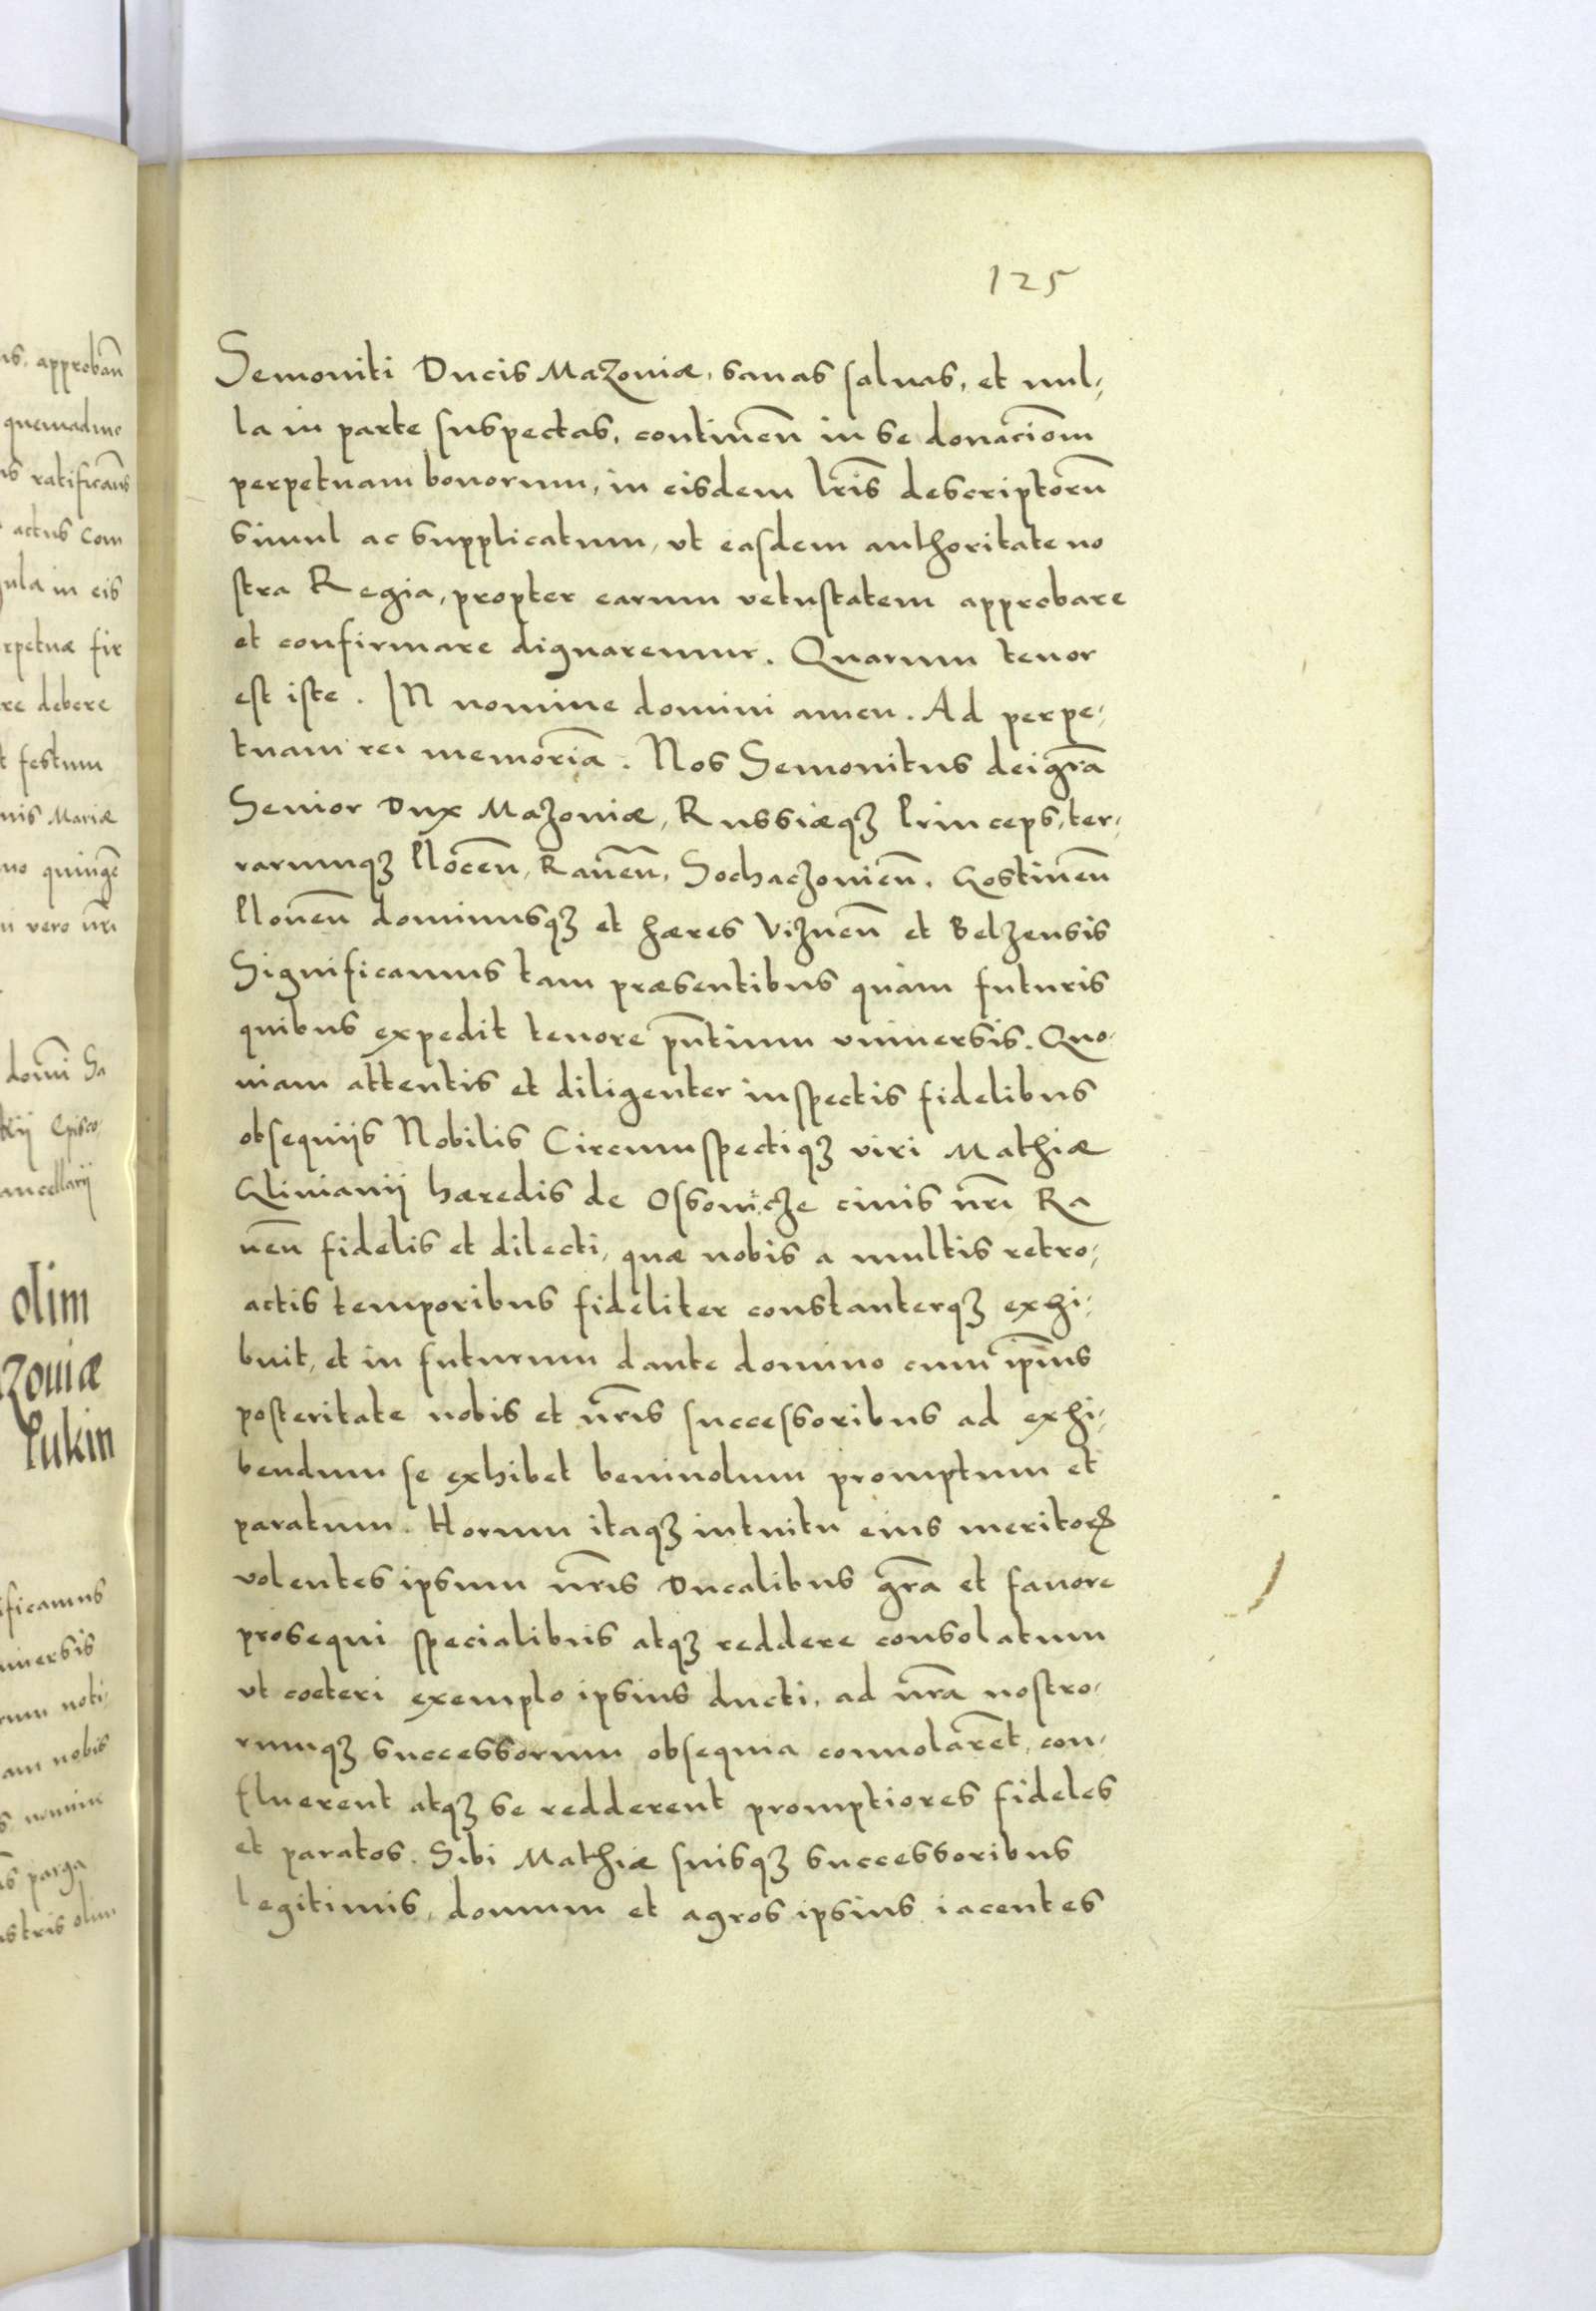 125
Semoviti Ducis Mazoviæ, sanas salvas, et nul-
la in parte suspectas, continen̄ in se donaciōm
perpetuam bonorum, in eisdem lr̄is descriptorū
simul ac supplicatum, ut easdem authoritate no
stra Regia, propter earum vetustatem approbare
et confirmare dignaremur. Quarum tenor
est iste. IN nomine domini amen. Ad perpe-
tuam rei memoriā. Nos Semovitus dei gr̄a
Senior Dux Mazoviæ, Russiæqꝫ Princeps, ter-
rarumqꝫ Plocen̄, Raven̄, Sochaczovien̄. Gostinen̄
Ploven̄ dominusqꝫ et hæres Viznen̄ et Belzensis
Significamus tam præsentibus quàm futuris
quibus expedit tenore pn̄tium universis. Quo-
niam attentis et diligenter inspectis fidelibus
obsequiis Nobilis Circumspectiqꝫ viri Mathiæ
Glinianij hæredis de Ossovicze civis nr̄i Ra
ven̄ fidelis et dilecti, quæ nobis a multis retro-
actis temporibus fideliter constanterqꝫ exhi-
buit, et in futurum dante domino cum ip̄ius
posteritate nobis et nr̄is successoribus ad exhi-
bendum se exhibet benivolum promptum et
paratum. Horum itaqꝫ intuitu eius meritoꝝ
volentes ipsum nr̄is Ducalibus gr̄a et favore
prosequi specialibus atqꝫ reddere consolatum
ut coeteri exemplo ipsius ducti, ad nr̄a nostro-
rumqꝫ successorum obsequia convolārēt, con-
fluerent atqꝫ se redderent promptiores fideles
et paratos. Sibi Mathiæ suisqꝫ successoribus
legitimis, domum et agros ipsius iacentes
olim
zoviæ
Pukin